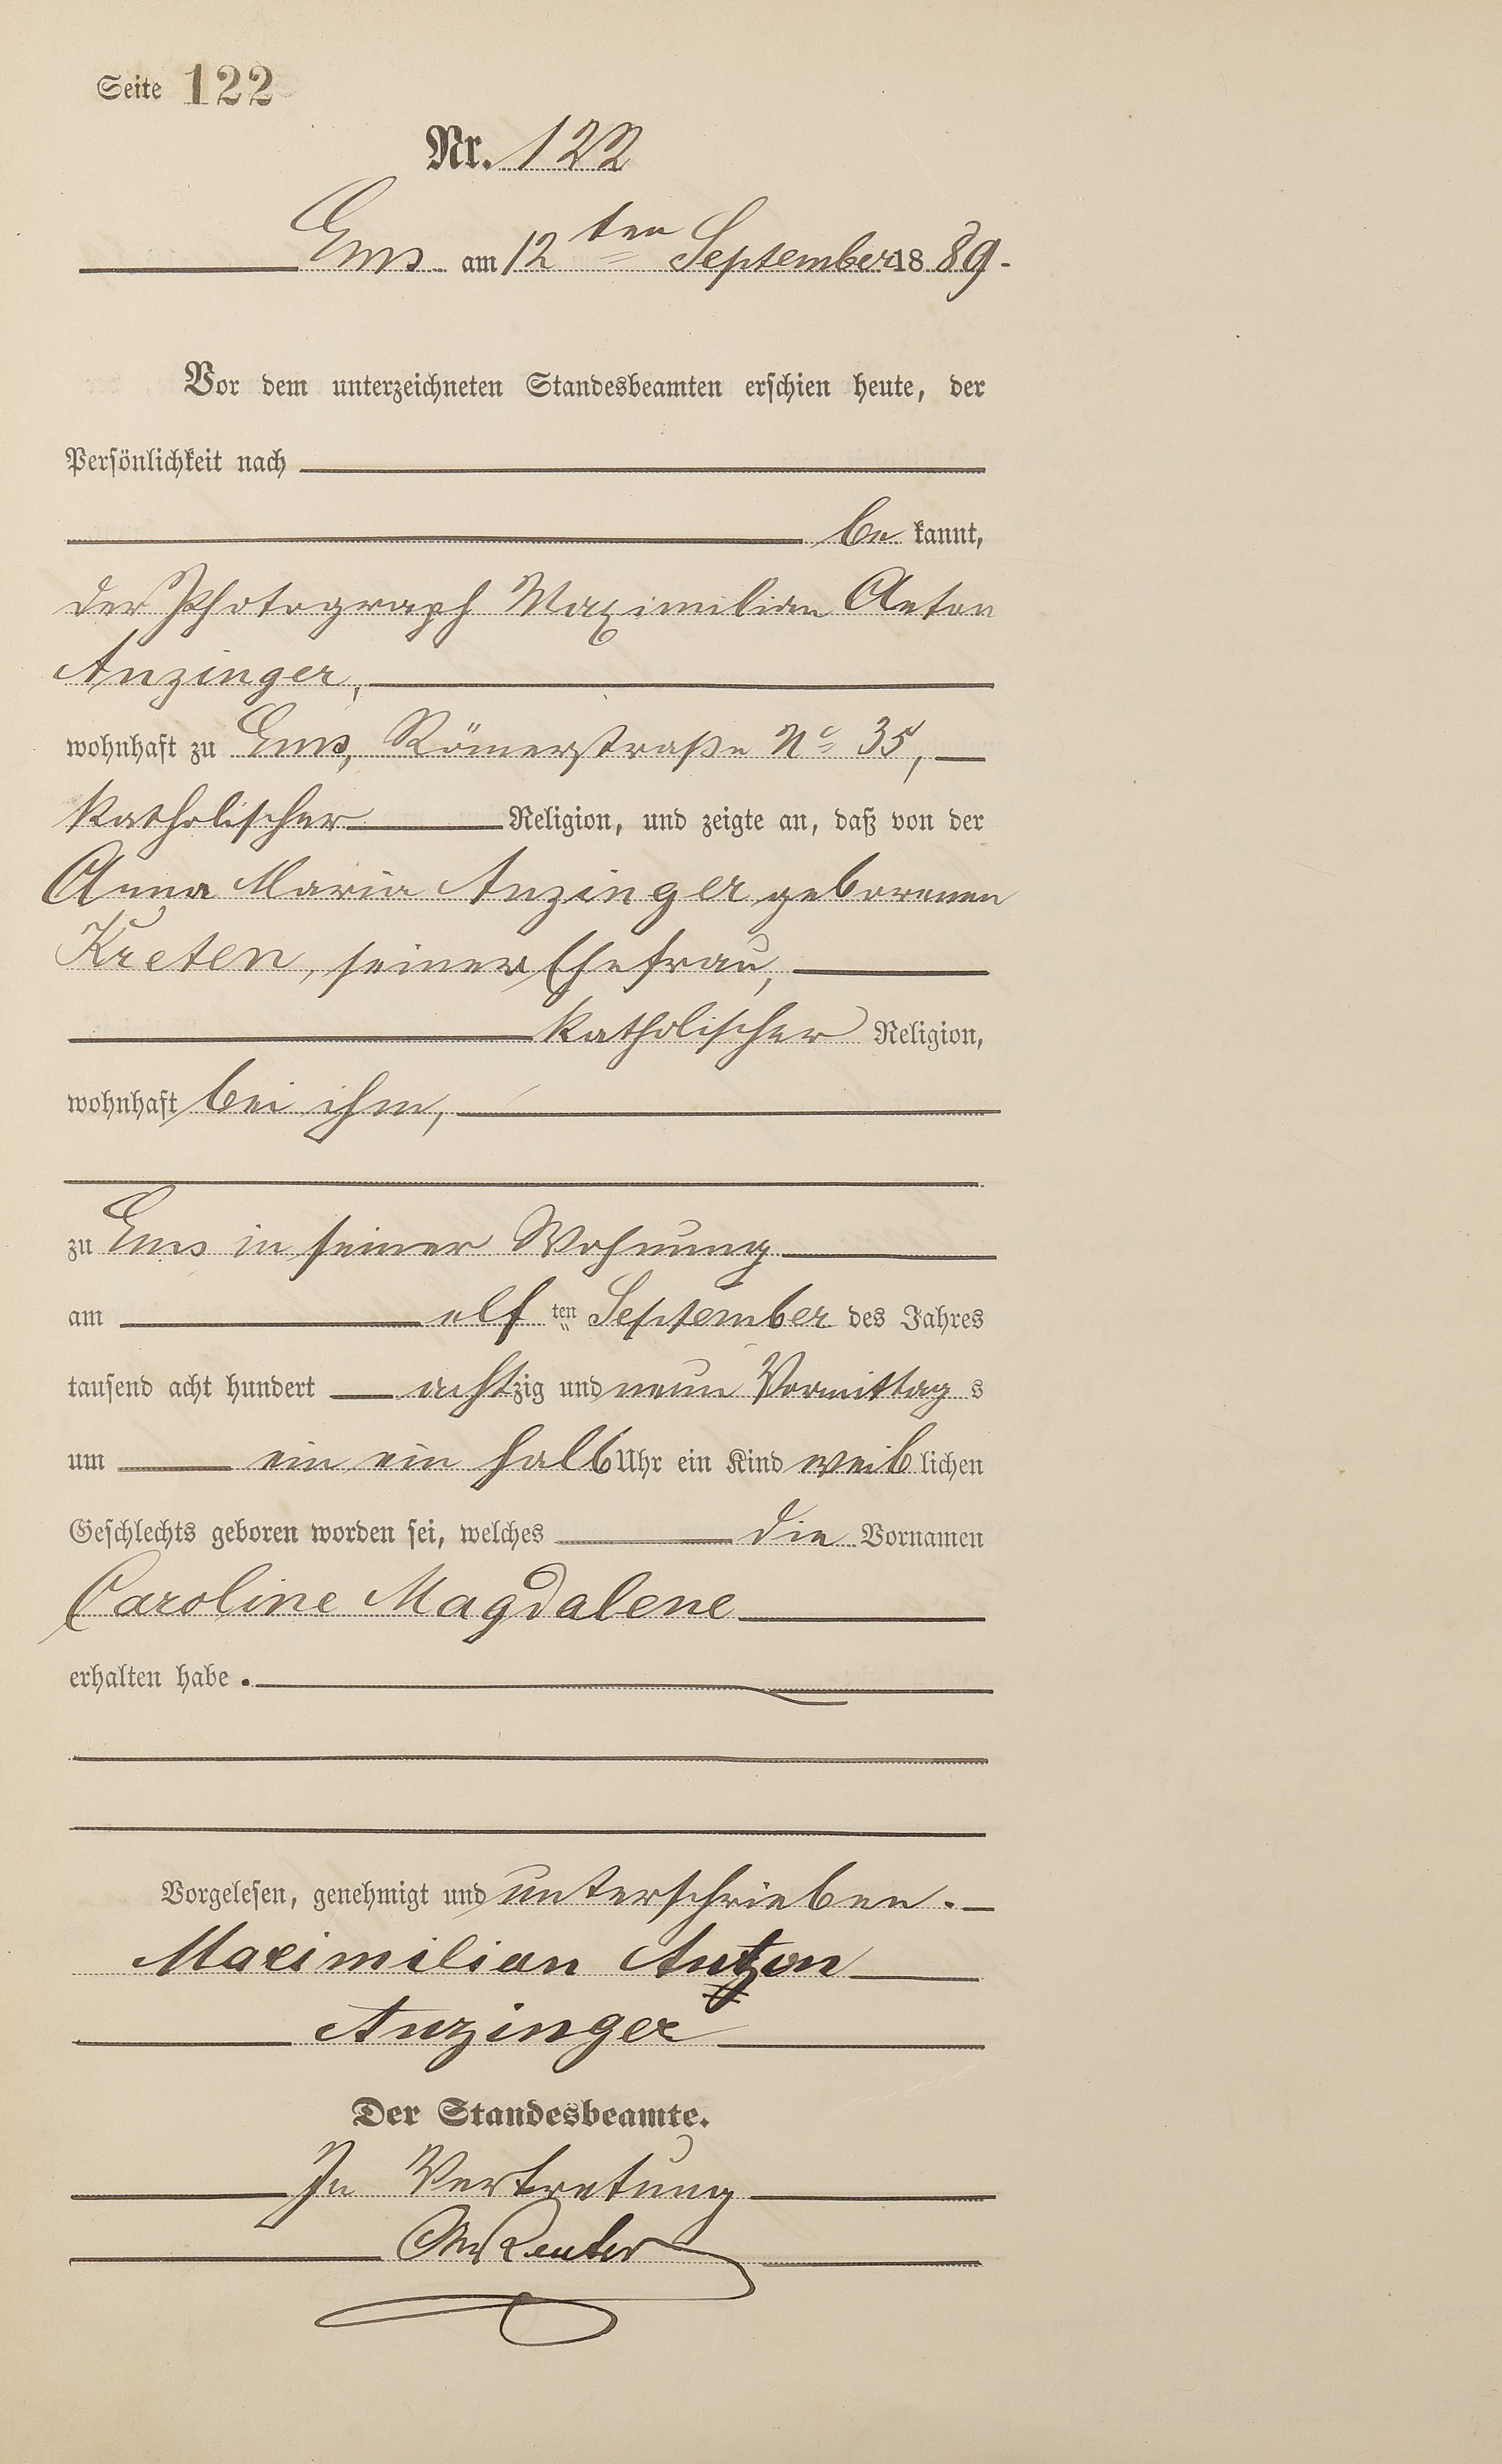 Seite 122
Nr. 122
Ems am 12ten September 1889.
Vor dem unterzeichneten Standesbeamten erschien heute, der
Persönlichkeit nach
be kannt,
der Photograph Maximilian Anton
Anzinger,
wohnhaft zu Ems, Römerstraße No 35,
katholischer Religion, und zeigte an, daß von der
Anna Maria Anzinger geborenen
Kreten, seiner Ehefrau,
katholischer Religion,
wohnhaft bei ihm,
zu Ems in seiner Wohnung
am elf ten September des Jahres
tausend acht hundert achtzig und neun Vormittag s
um ein ein halb Uhr ein Kind weiblichen
Geschlechts geboren worden sei, welches die Vornamen
Caroline Magdalene
erhalten habe.
Vorgelesen, genehmigt und unterschrieben.
Maximilian Anton
Anzinger
Der Standesbeamte.
In Vertretung
Reuter